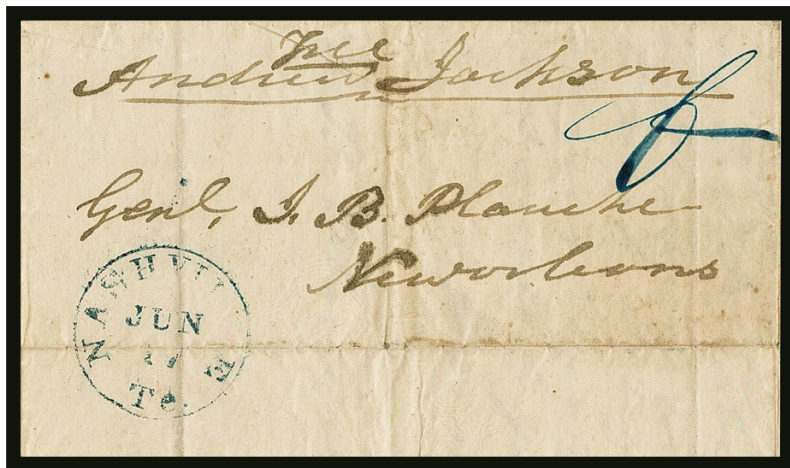 Free
Andrew Jackson
Genl. J. B. Plauche
Neworleans
NASHVILLE
JUN
Te.